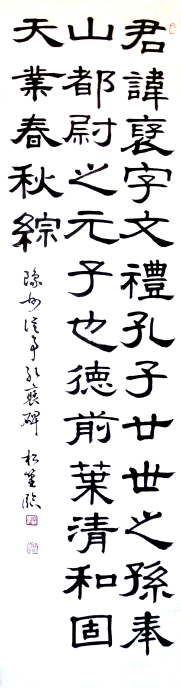 君諱褒字文禮孔子廿世之孫奉
山都尉之元子也德前葉清和固
天業春秋綜
孔褒碑
臨